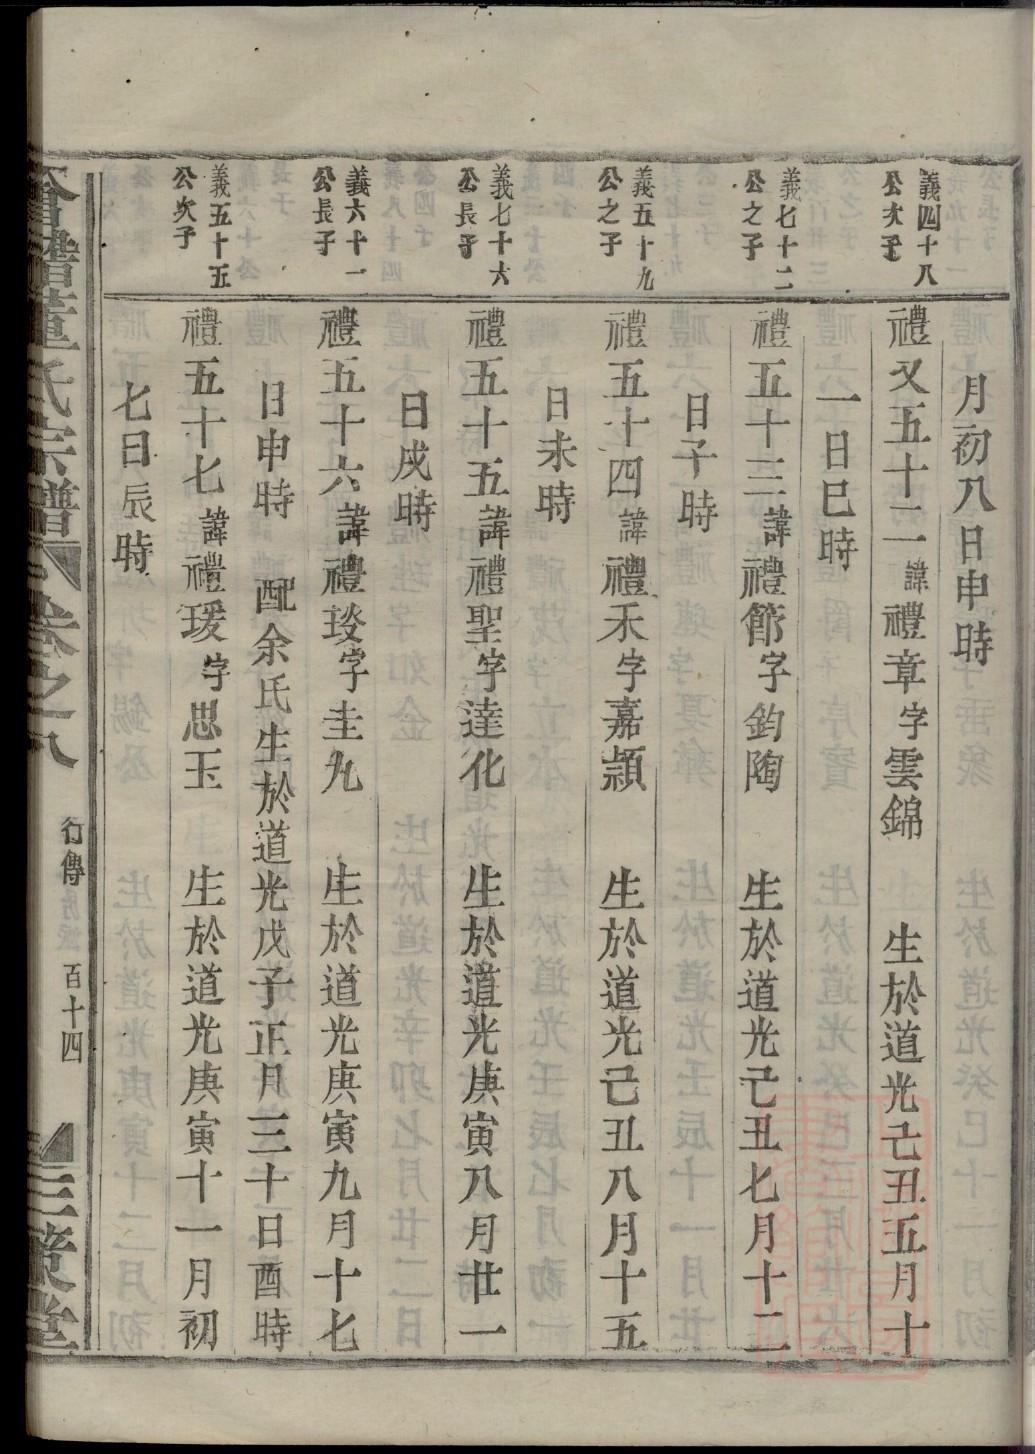 月初八日申時
義四十八
公次子
禮又五十二諱禮章字雲錦 生於道光己丑五月十
一日巳時
義七十二
公之子
禮五十三諱禮節字鈞陶 生於道光己丑七月十二
日子時
義五十九
公之子
禮五十四諱禮禾字嘉頴 生於道光己丑八月十五
日未時
義七十六
公長子
禮五十五諱禮聖字達化 生於道光庚寅八月廿一
日戌時
義六十一
公長子
禮五十六諱禮琰字圭九 生於道光庚寅九月十七
日申時 配余氏生於道光戊子正月三十日酉時
義五十五
公次子
禮五十七諱禮瑗字思玉 生於道光庚寅十一月初
七日辰時
董氏宗譜 卷之八
行傳 百十四
三策堂